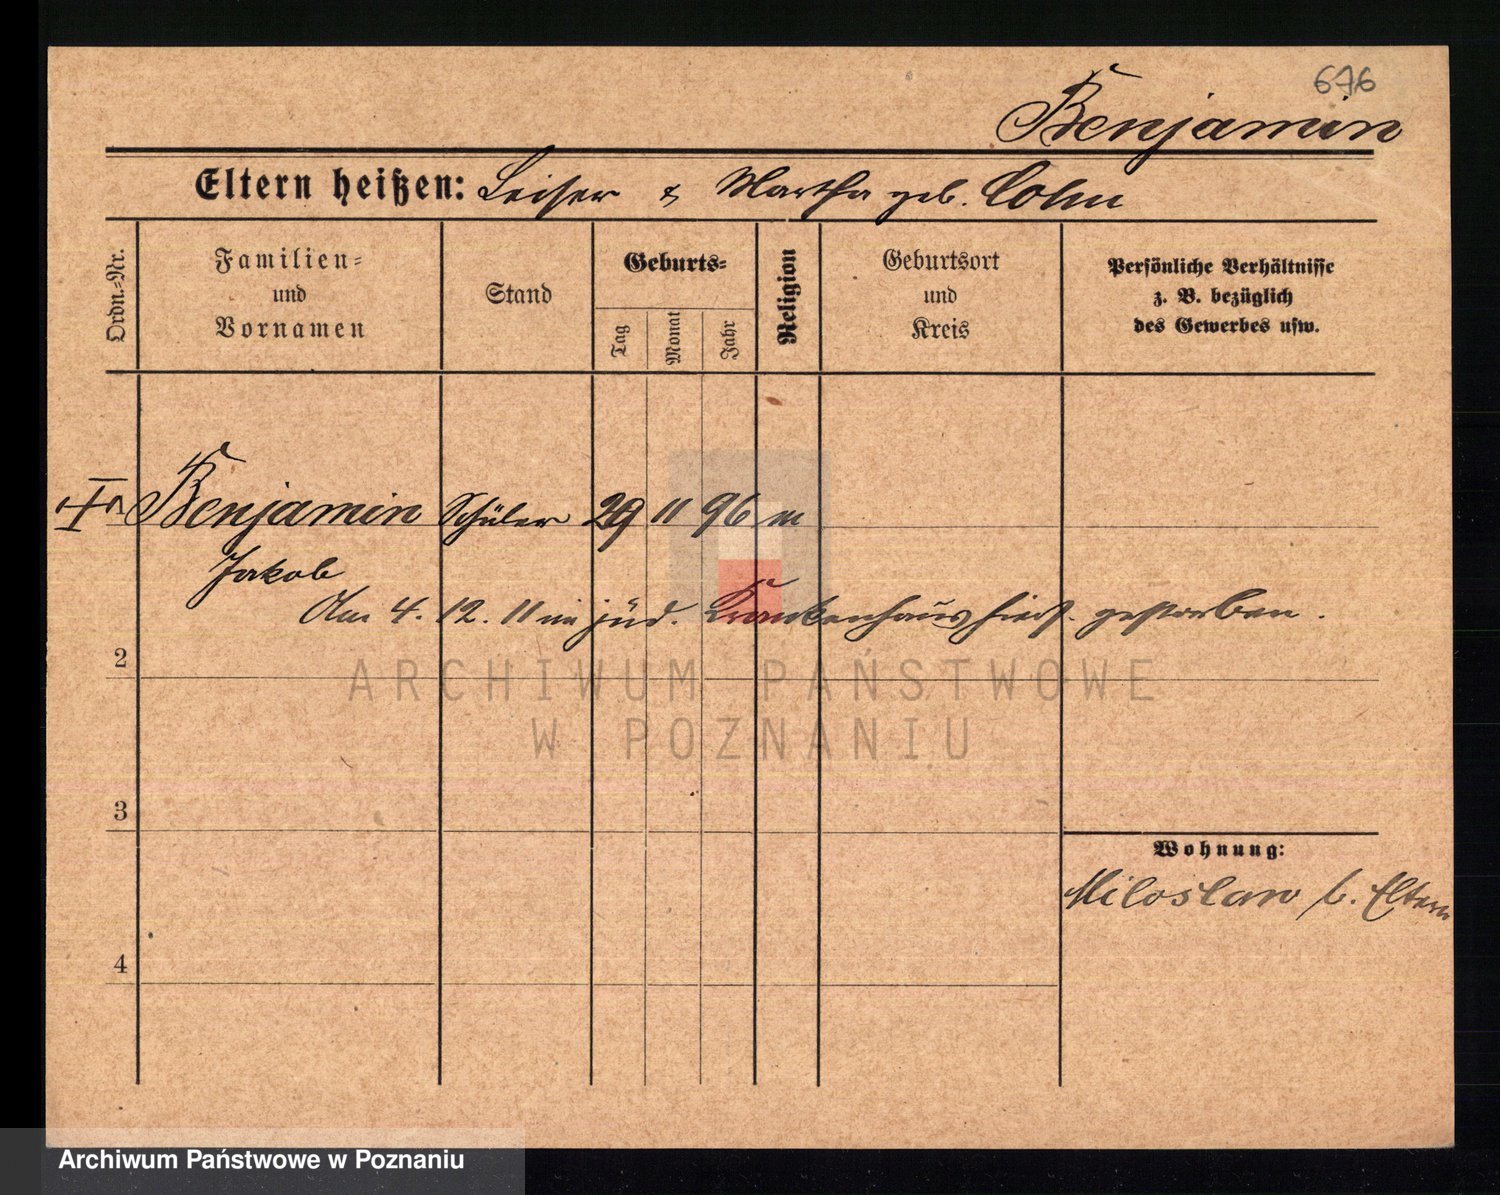 676
Benjamin
Eltern heißen: Leiser & Martha geb. Cohn
Ordn.-Nr.
Familien-
und
Vornamen
Stand
Geburts-
Tag
Monat
Jahr
Religion
Geburtsort
und
Kreis
Persönliche Verhältnisse
z. B. bezüglich
des Gewerbes usw.
Benjamin Schüler 29 11 96 m
Jakob
Am 4. 12. 11 im jüd. Krankenhaus hies. gestorben.
2
ARCHIWUM PAŃSTWOWE
W POZNANIU
3
Wohnung:
Miloslaw b. Eltern
4
Archiwum Państwowe w Poznaniu